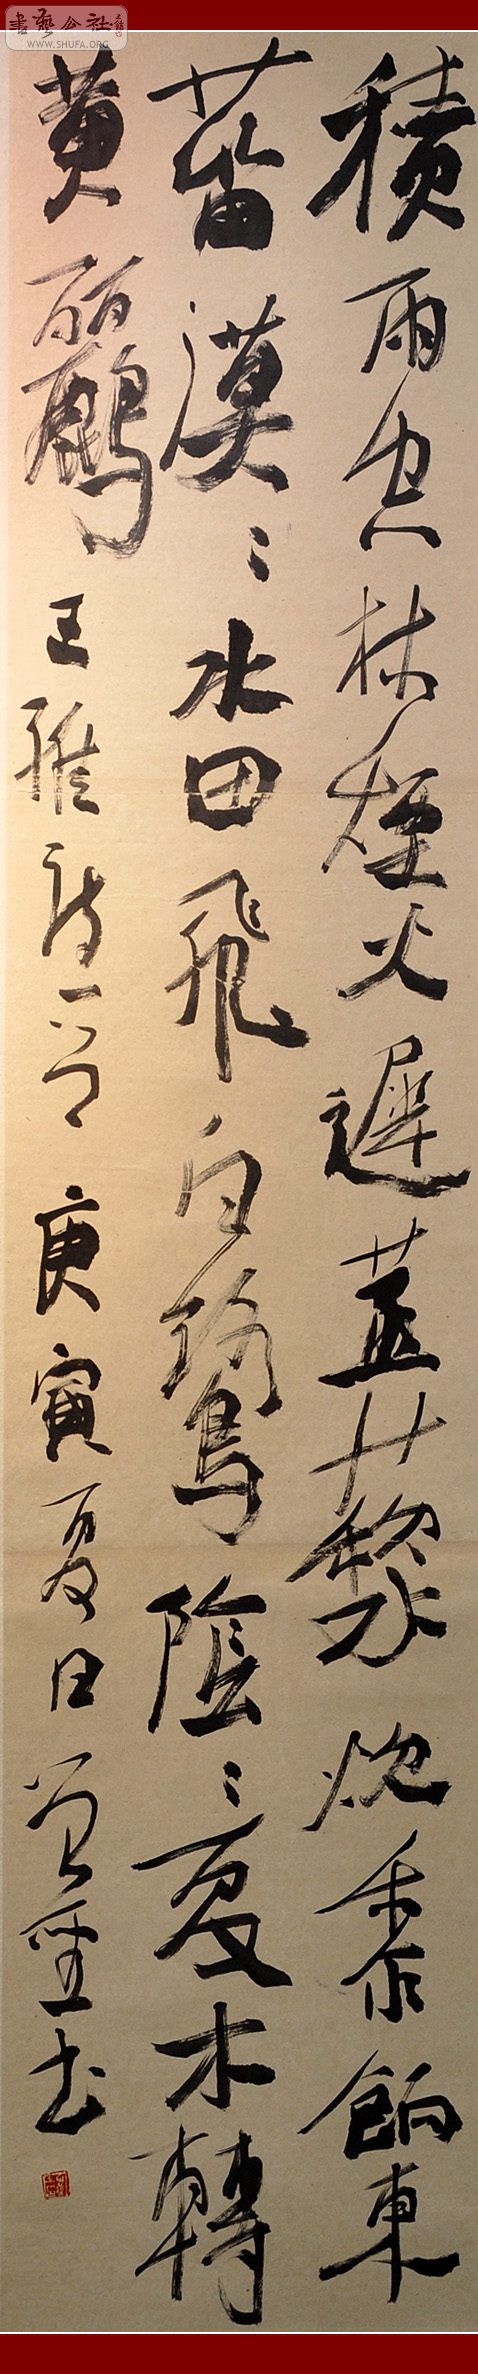 書藝公社
WWW.SHUFA.ORG
積雨空林煙火遲蒸藜炊黍餉東
菑漠〻水田飛白鷺陰〻夏木轉
黄鸝 王維詩一首 庚寅夏日 書